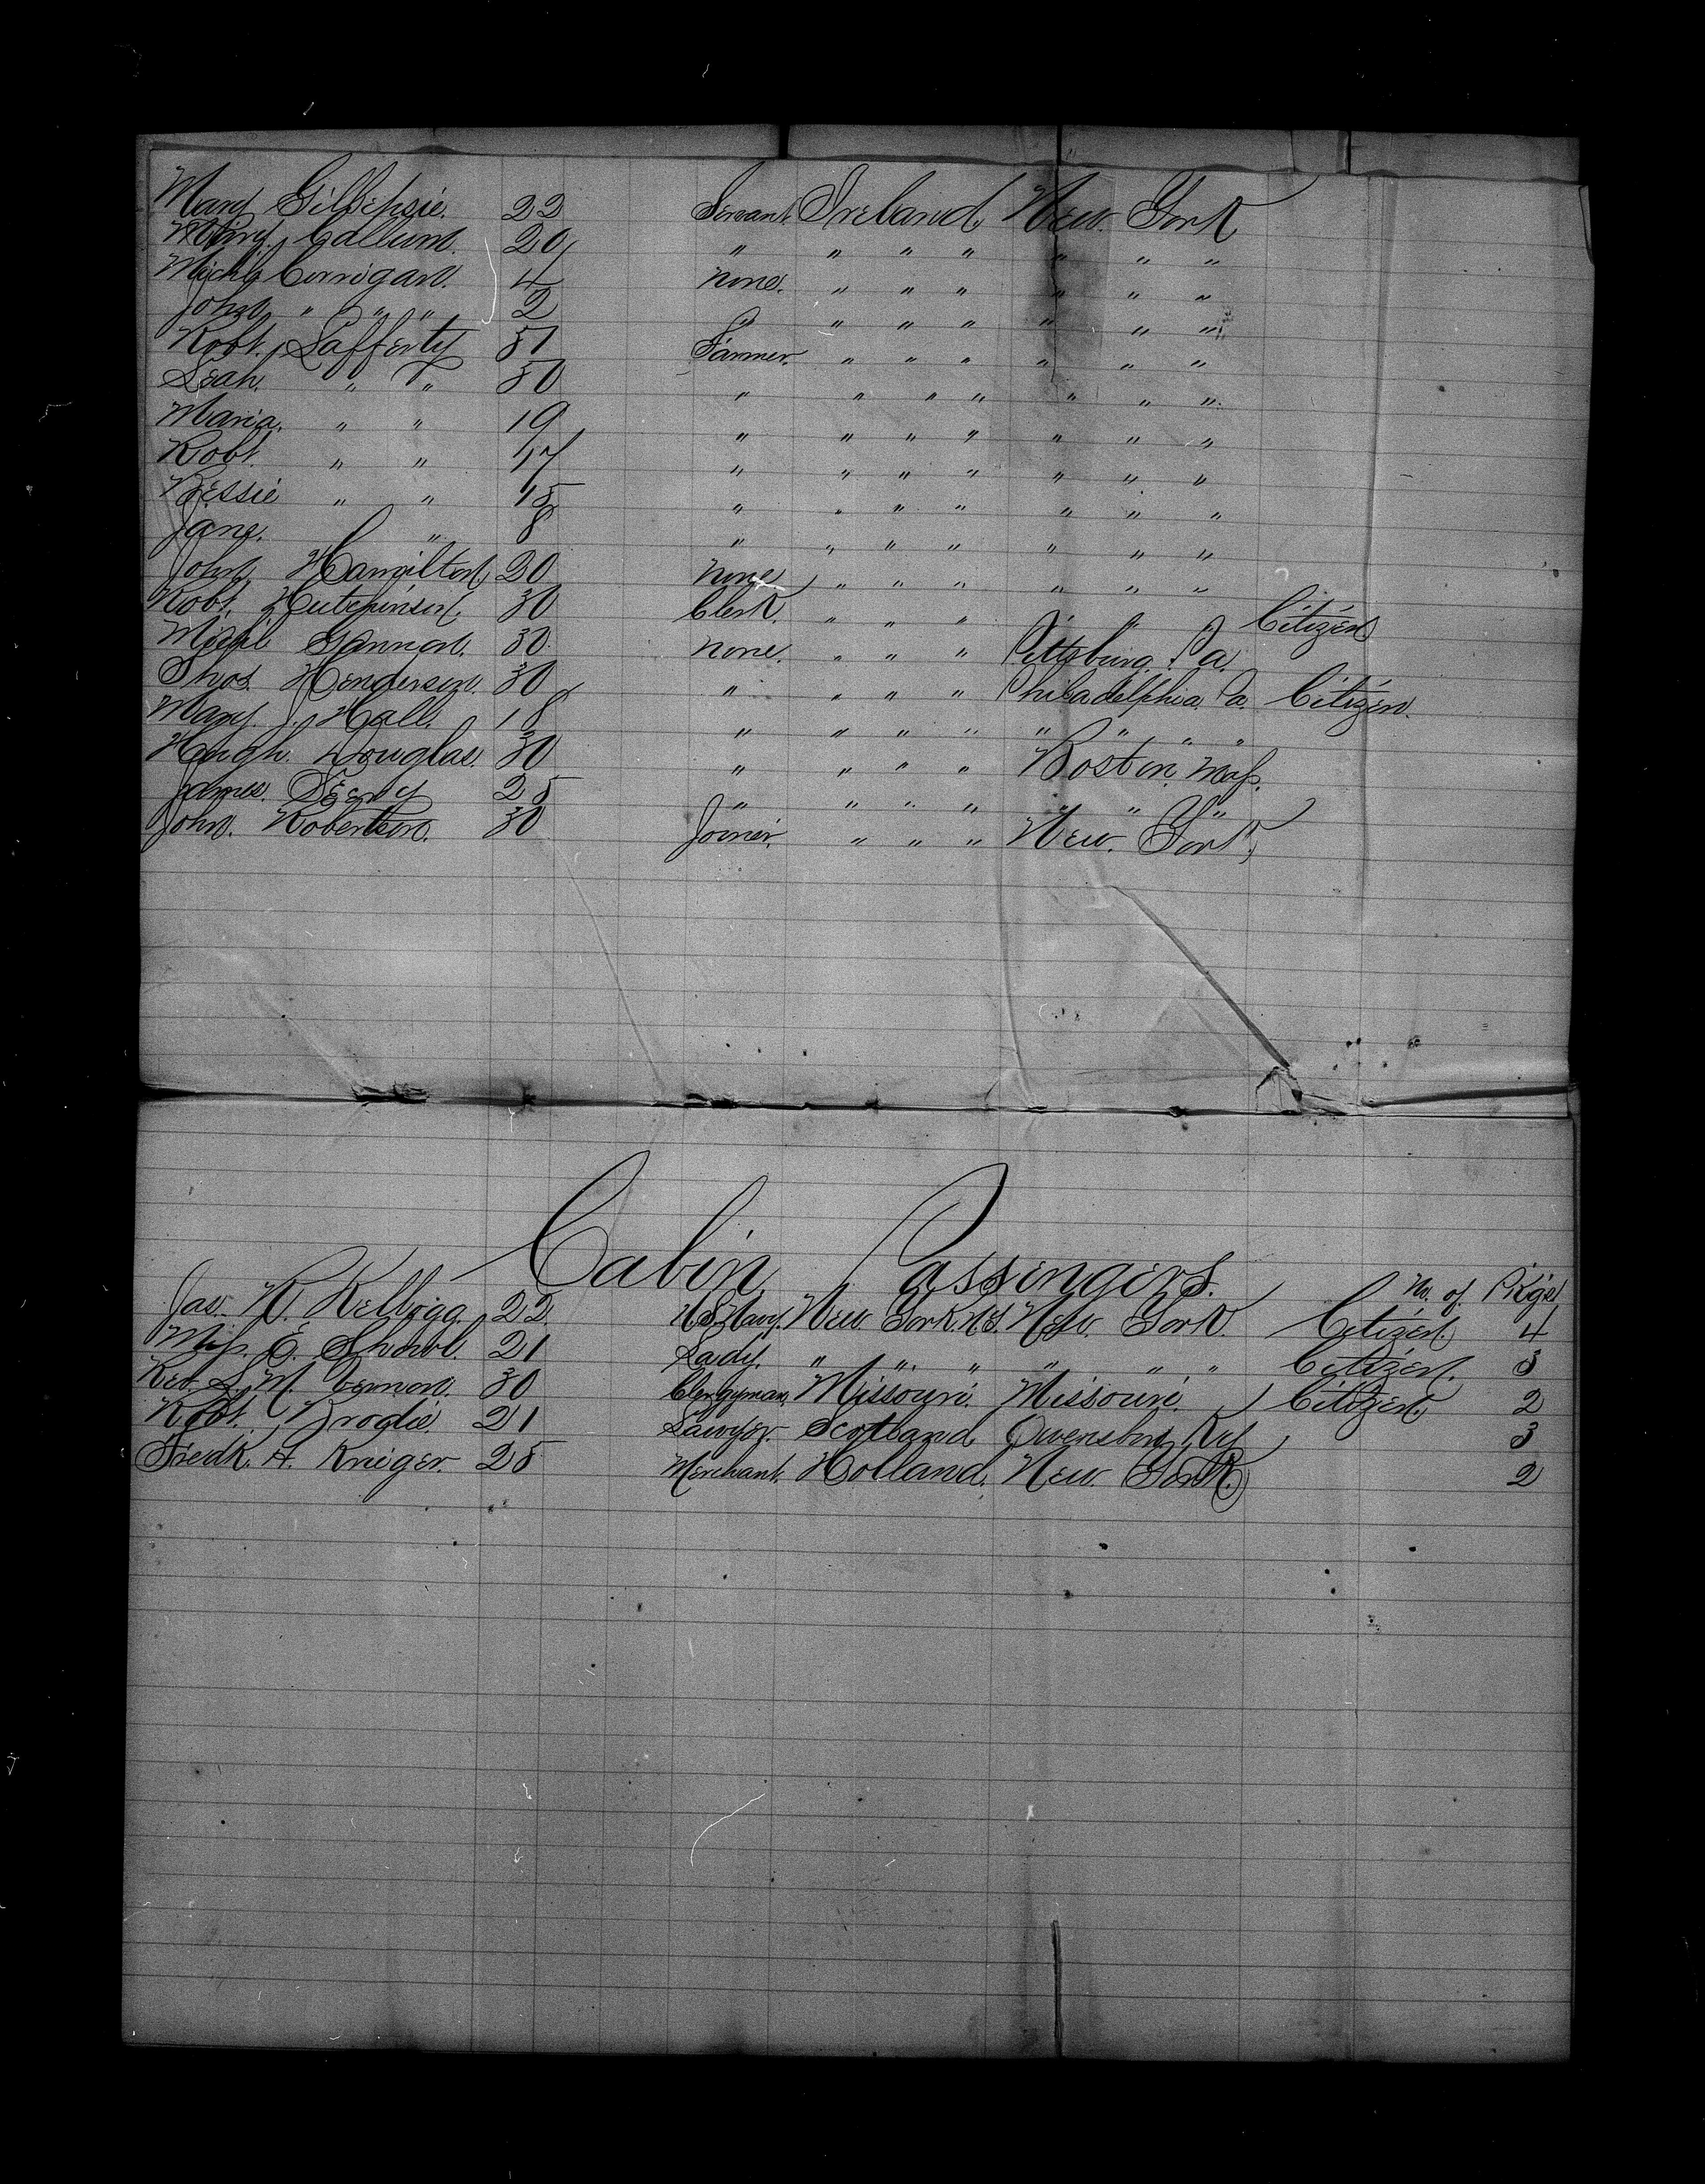 Mary Gillepsie. 22 Servant. Ireland, New York
Mary Callum. 20 " " " " " " "
Michl. Corrigan. 4 None. " " " " " "
John. " " " 2 " " " " " " "
Robt. Lafferty 51 Farmer. " " " " " "
Leah. " " 50 " " " " " " "
Maria. " " 19 " " " " " " "
Robt. " " 17 " " " " " " "
Bessie " " 15 " " " " " " "
Jane. " 8 " " " " " " "
John Hamilton 20 None " " " " " "
Robt. Hutchinson 30 Clerk. " " " " " " Citizen
Michl Gannon. 30. None. " " " Pittsburg. Pa.
Thos. Henderson. 30 " " " " Philadelphia. Pa. Citizen.
Mary. J. Hall. 18 " " " " " " " "
Hugh. Douglas. 30 " " " " Boston, Mass.
James. 25 " " " " " " "
John. Robertson. 30 Joiner. " " " New. York.
Cabin Passengers.
No. of Pkgs
Jas. H. Kellogg. 22. U.S. Navy. New. York. N.Y. New. York. Citizen. 4
Miss. E. 21 Lady. " " " " " " Citizen. 3
Rev. L. M. Vernon. 30 Clergyman, Missouri. Missouri. Citizen. 2
Robt. Brodie. 21 Lawyer. Scotland Owensboro, Ky 3
Fredk. A. Kruger. 25 Merchant. Holland. New. York. 2